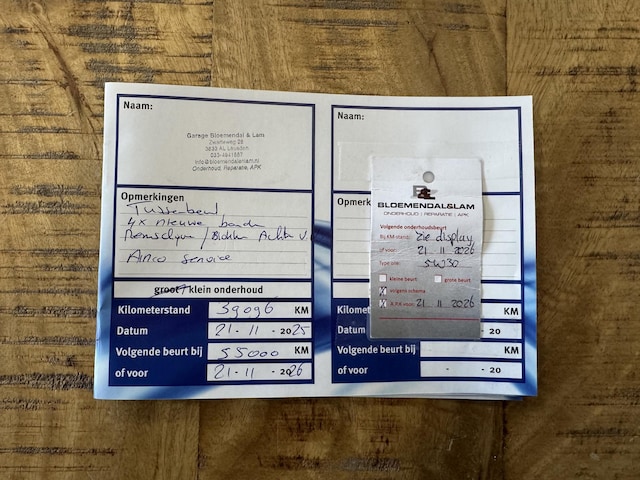 Naam:
Garage Bloemendal & Lam
Zwarteweg
3833 AL Leusden
info@bloemendalenlam.nl
Onderhoud, Reparatie, APK
Opmerkingen
Tussenbeurt
4x nieuwe banden
Remschijven / Blokken Achter V.
Airco service
groot / klein onderhoud
Kilometerstand 39096 KM
Datum 21 - 11 - 2025
Volgende beurt bij 55000 KM
of voor 21 - 11 - 2026
Naam:
Opmerk
Kilome
KM
Datum
- 20
Volgende beurt bij KM
of voor - - 20
BLOEMENDAL&LAM
ONDERHOUD | REPARATIE | APK
Volgende onderhoudsbeurt
Bij KM-stand: zie display
of voor: 21 11 2026
Type olie: 5W30
kleine beurt grote beurt
volgens schema
A.P.K voor: 21 11 2026